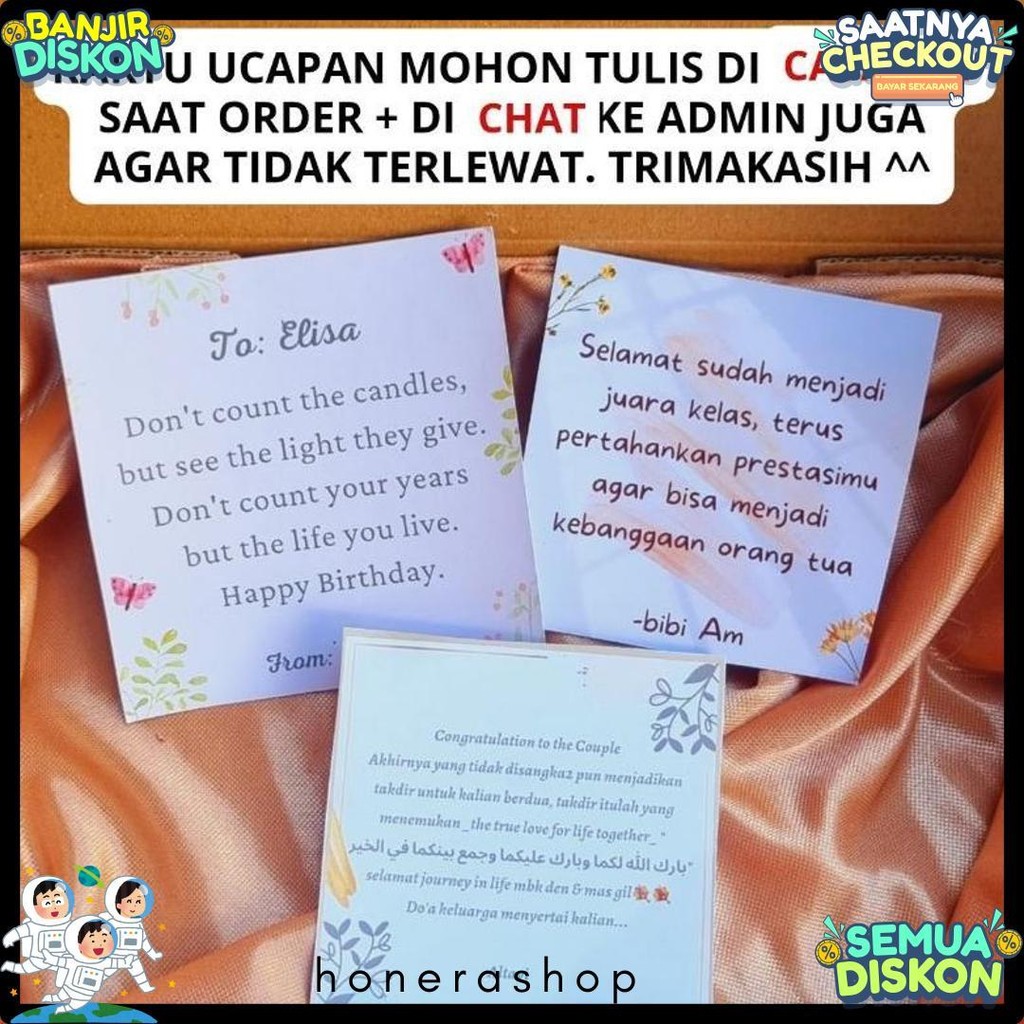 BANJIR
DISKON
SAATNYA
CHECKOUT
BAYAR SEKARANG
UCAPAN MOHON TULIS DI
SAAT ORDER + DI CHAT KE ADMIN JUGA
AGAR TIDAK TERLEWAT. TRIMAKASIH ^^
To: Elisa
Don't count the candles,
but see the light they give.
Don't count your years
but the life you live.
Happy Birthday.
From:
Selamat sudah menjadi
juara kelas, terus
pertahankan prestasimu
agar bisa menjadi
kebanggaan orang tua
-bibi Am
Congratulation to the Couple
Akhirnya yang tidak disangka2 pun menjadikan
takdir untuk kalian berdua, takdir itulah yang
menemukan _the true love for life together_"
"بارك الله لكما وبارك عليكما وجمع بينكما في الخير
selamat journey in life mbk den & mas gil
Do'a keluarga menyertai kalian...
honerashop
SEMUA
DISKON